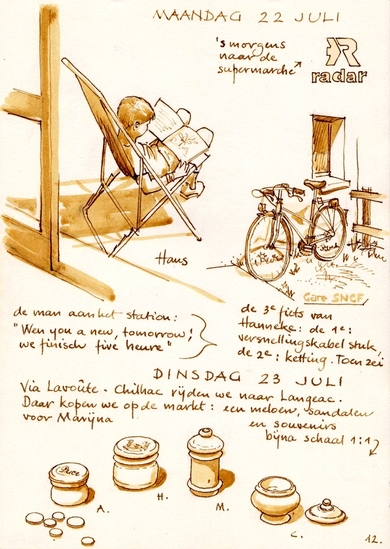 MAANDAG 22 JULI
's morgens
naar de
supermarché
radar
Hans
Gare SNCF
de man aan het station:
"Wen you a new, tomorrow!
we finisch five heure"
de 3e fiets van
Hanneke: de 1e:
versnellingskabel stuk,
de 2e: ketting. Toen zei
DINSDAG 23 JULI
Via Lavoûte-Chilhac rijden we naar Langeac.
Daar kopen we op de markt: een meloen, sandalen
voor Marijna
en souvenirs
bijna schaal 1:1
A.
H.
M.
C.
12.